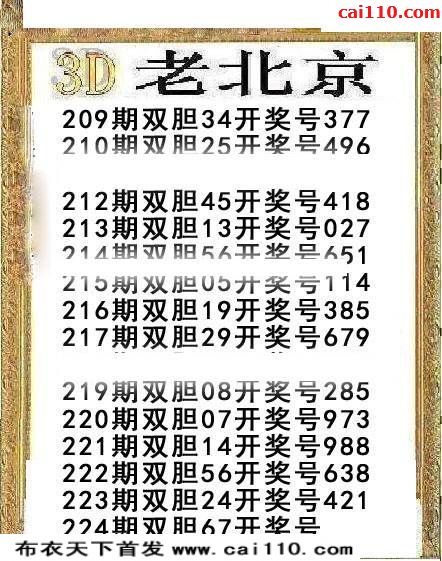 cai110.com
3D 老北京
209期双胆34开奖号377
210期双胆25开奖号496
212期双胆45开奖号418
213期双胆13开奖号027
214期双胆56开奖号651
215期双胆05开奖号114
216期双胆19开奖号385
217期双胆29开奖号679
219期双胆08开奖号285
220期双胆07开奖号973
221期双胆14开奖号988
222期双胆56开奖号638
223期双胆24开奖号421
224期双胆67开奖号
布衣天下首发 www.cai110.com